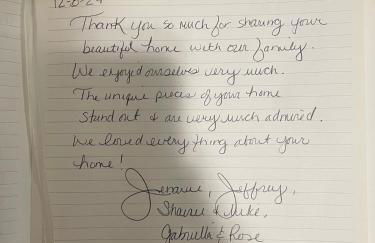 Thank you so much for sharing your
beautiful home with our family.
We enjoyed ourselves very much.
The unique pieces of your home
stand out & are very much admired.
We loved everything about your
home!
Jeffrey,
& Luke,
Gabriella & Rose